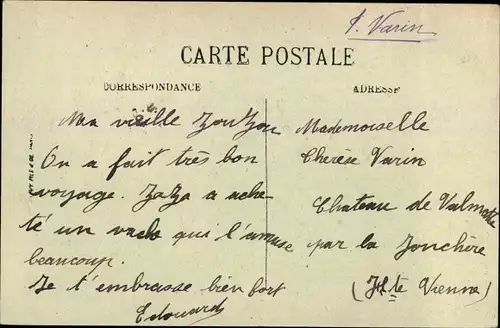 P. Varin
CARTE POSTALE
CORRESPONDANCE
ADRESSE
Ma vieille ZouZou
On a fait très bon
voyage. ZaZa a ache
té un vache qui l'amuse
beaucoup.
Je t'embrasse bien fort
Edouard
Mademoiselle
Thérèse Varin
Chateau de Valmate
par la Jonchère
(Hte Vienne)